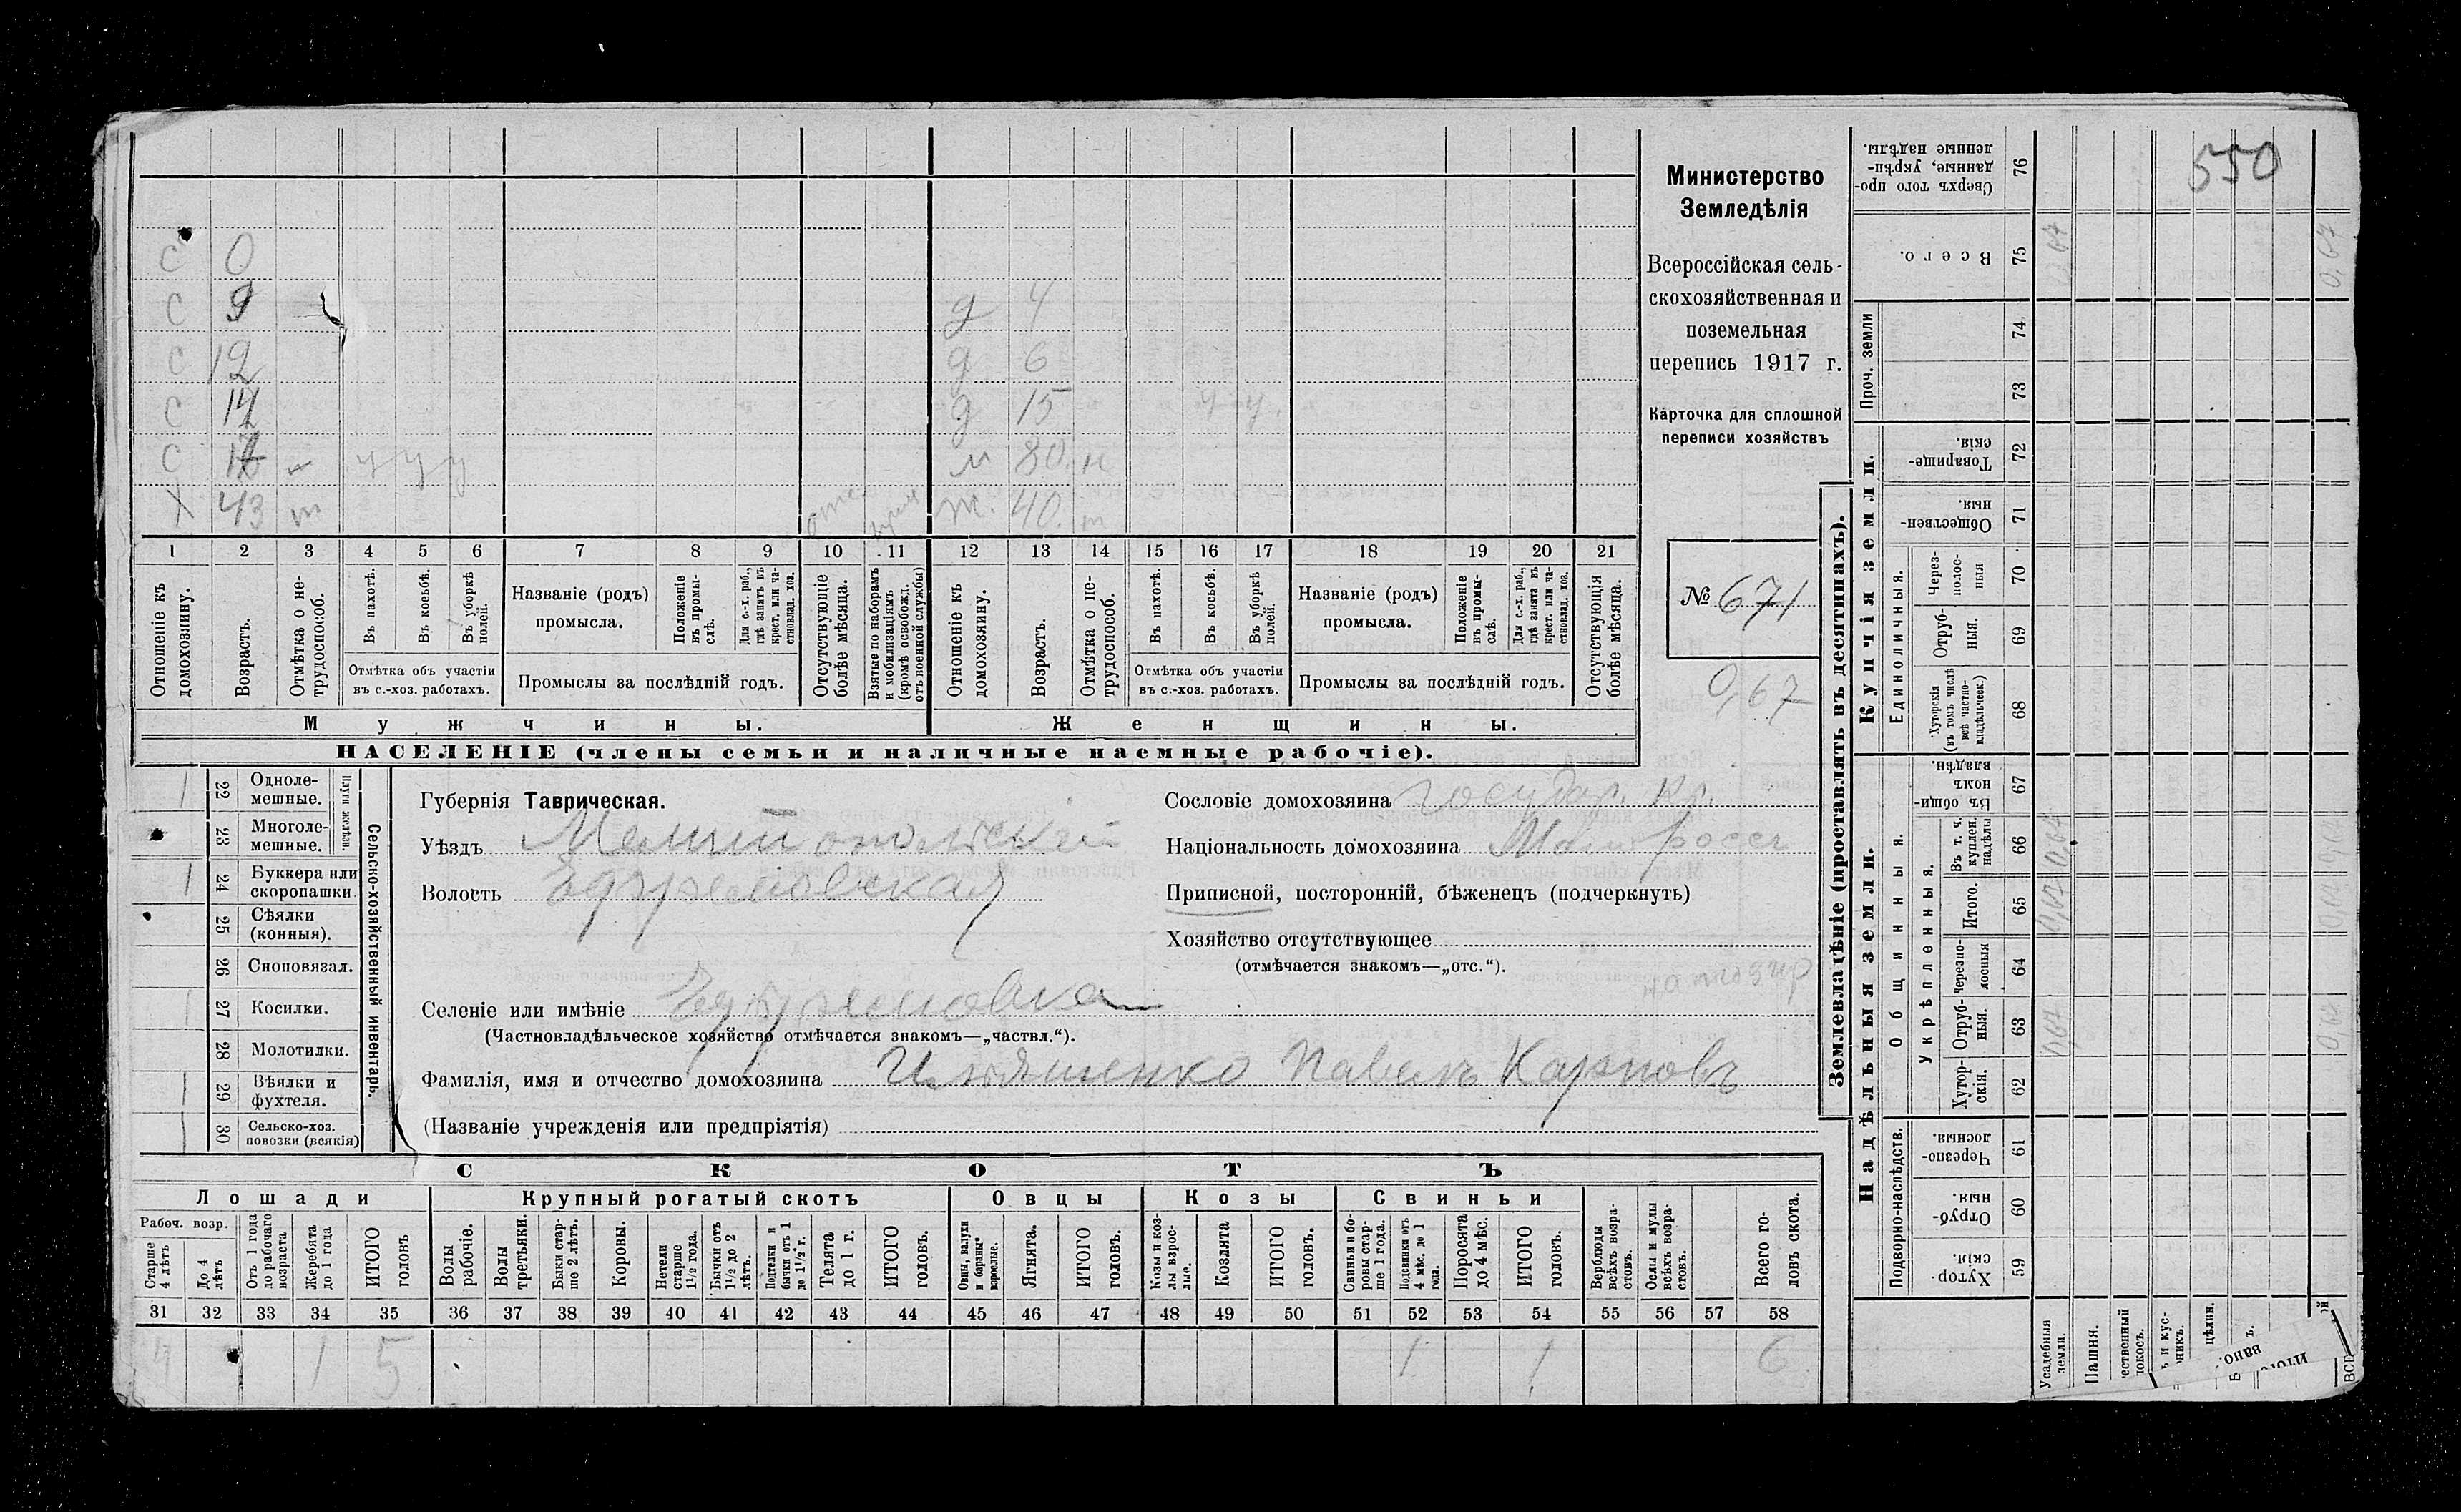 550
Министерство
Земледѣлія
Всероссійская сель-
скохозяйственная и
поземельная
перепись 1917 г.
Карточка для сплошной
переписи хозяйствъ
№ 671
0,67
с 0
с 9 д 4
с 12 д 6
с 14 д 15 у у.
с у у у м 80. н
Х 43 т ж. 40. т
1 2 3 4 5 6 7 8 9 10 11 12 13 14 15 16 17 18 19 20 21
Отношеніе къ домохозяину.
Возрастъ.
Отмѣтка о не-трудоспособ.
Въ пахотѣ.
Въ косьбѣ.
Въ уборкѣ полей.
Отмѣтка объ участіи
въ с.-хоз. работахъ.
Названіе (родъ)
промысла.
Положеніе въ промы-слѣ.
Для с.-х. раб., гдѣ занятъ въ крест. или ча-стновлад. хоз.
Промыслы за послѣдній годъ.
Отсутствующіе болѣе мѣсяца.
Взятые по наборамъ и мобилизаціямъ (кромѣ освобожд. отъ военной службы)
Отношеніе къ домохозяину.
Возрастъ.
Отмѣтка о не-трудоспособ.
Въ пахотѣ.
Въ косьбѣ.
Въ уборкѣ полей.
Отмѣтка объ участіи
въ с.-хоз. работахъ.
Названіе (родъ)
промысла.
Положеніе въ промы-слѣ.
Для с.-х. раб., гдѣ занята въ крест. или ча-стновлад. хоз.
Промыслы за послѣдній годъ.
Отсутствующія болѣе мѣсяца.
Мужчины. Женщины.
НАСЕЛЕНІЕ (члены семьи и наличные наемные рабочіе).
Сельско-хозяйственный инвентарь.
Плуги желѣзн.
1 22 Одноле-мешные.
23 Многоле-мешные.
1 24 Буккера или скоропашки
25 Сѣялки (конныя).
26 Сноповязал.
1 27 Косилки.
28 Молотилки.
1 29 Вѣялки и фухтеля.
1 30 Сельско-хоз. повозки (всякія)
Губернія Таврическая.
Уѣздъ Мелитопольскій
Волость Ефремовская
Селеніе или имѣніе Ефремовка
(Частновладѣльческое хозяйство отмѣчается знакомъ—„частвл.“).
Фамилія, имя и отчество домохозяина Ильяшенко Павелъ Карповъ
(Названіе учрежденія или предпріятія)
Сословіе домохозяина государ. кр.
Національность домохозяина Малоросс
Приписной, посторонній, бѣженец (подчеркнуть)
Хозяйство отсутствующее
(отмѣчается знакомъ—„отс.“).
СКОТЪ
Лошади Крупный рогатый скотъ Овцы Козы Свиньи
Рабоч. возр.
Старше 4 лѣтъ
До 4 лѣтъ
Отъ 1 года до рабочаго возраста
Жеребята до 1 года
ИТОГО головъ
Волы рабочіе.
Волы третьяки.
Быки стар-ше 2 лѣтъ.
Коровы.
Нетели старше 1½ года.
Бычки отъ 1½ до 2 лѣтъ.
Подтелки и бычки отъ 1 до 1½ г.
Телята до 1 г.
ИТОГО головъ.
Овцы, валухи и бараны взрослые.
Ягнята.
ИТОГО головъ.
Козы и коз-лы взрос-лые.
Козлята
ИТОГО головъ.
Свиньи и бо-ровы стар-ше 1 года.
Подсвинки отъ 4 мѣс. до 1 года.
Поросята до 4 мѣс.
ИТОГО головъ.
Верблюды всѣхъ возра-стовъ.
Ослы и мулы всѣхъ возра-стовъ.
Всего го-ловъ скота.
31 32 33 34 35 36 37 38 39 40 41 42 43 44 45 46 47 48 49 50 51 52 53 54 55 56 57 58
4 1 5 1 1 6
Землевладѣніе (проставлять въ десятинахъ).
Надѣльныя земли. Купчія земли.
Проч. земли
Подворно-наслѣдств.
Общинныя.
Укрѣпленныя.
Единоличныя.
Сверхъ того про-данные, укрѣп-ленные надѣлы. 76
Всего. 75 0,67 0,67
74
73
Товарище-скія. 72
Обществен-ныя 71
Через-полос-ныя 70
Отруб-ныя. 69
Хуторскія (въ томъ числѣ всѣ частно-владѣльческ.) 68
Въ общи-номъ владѣн. 67
Въ т. ч. куплен. надѣлы 66
Итого. 65
Черезпо-лосныя 64
Отруб-ныя. 63 0,67 0,67
Хутор-скія. 62
Черезпо-лосныя. 61
Отруб-ныя. 60
Хутор-скія. 59
Усадебныя земли.
Пашня.